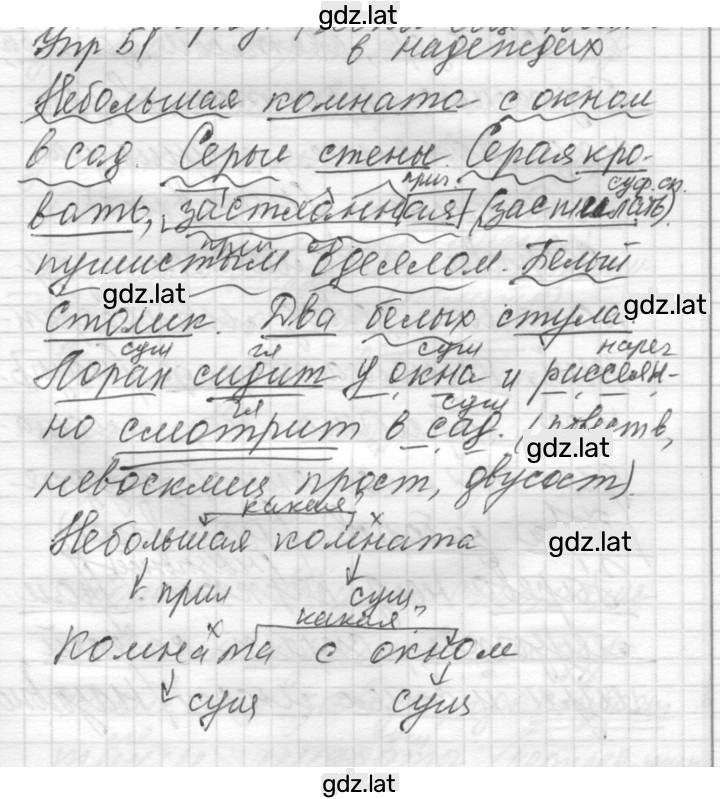 gdz.lat
Упр 51 в надеждах
Небольшая комната с окном
в сад. Серые стены. Серая кро-
прич. суф. сл.
вать, застланная (заспилать)
прил
пушистым одеялом. Белый
gdz.lat
столик. Два белых стула.
gdz.lat
сущ гл сущ нареч
Лоран сидит у окна и рассеян-
гл сущ
но смотрит в сад. (повеств,
gdz.lat
невосклиц прост, двусост).
какая?
Небольшая комната
gdz.lat
прил сущ
какая?
Комната с окном
сущ сущ
gdz.lat